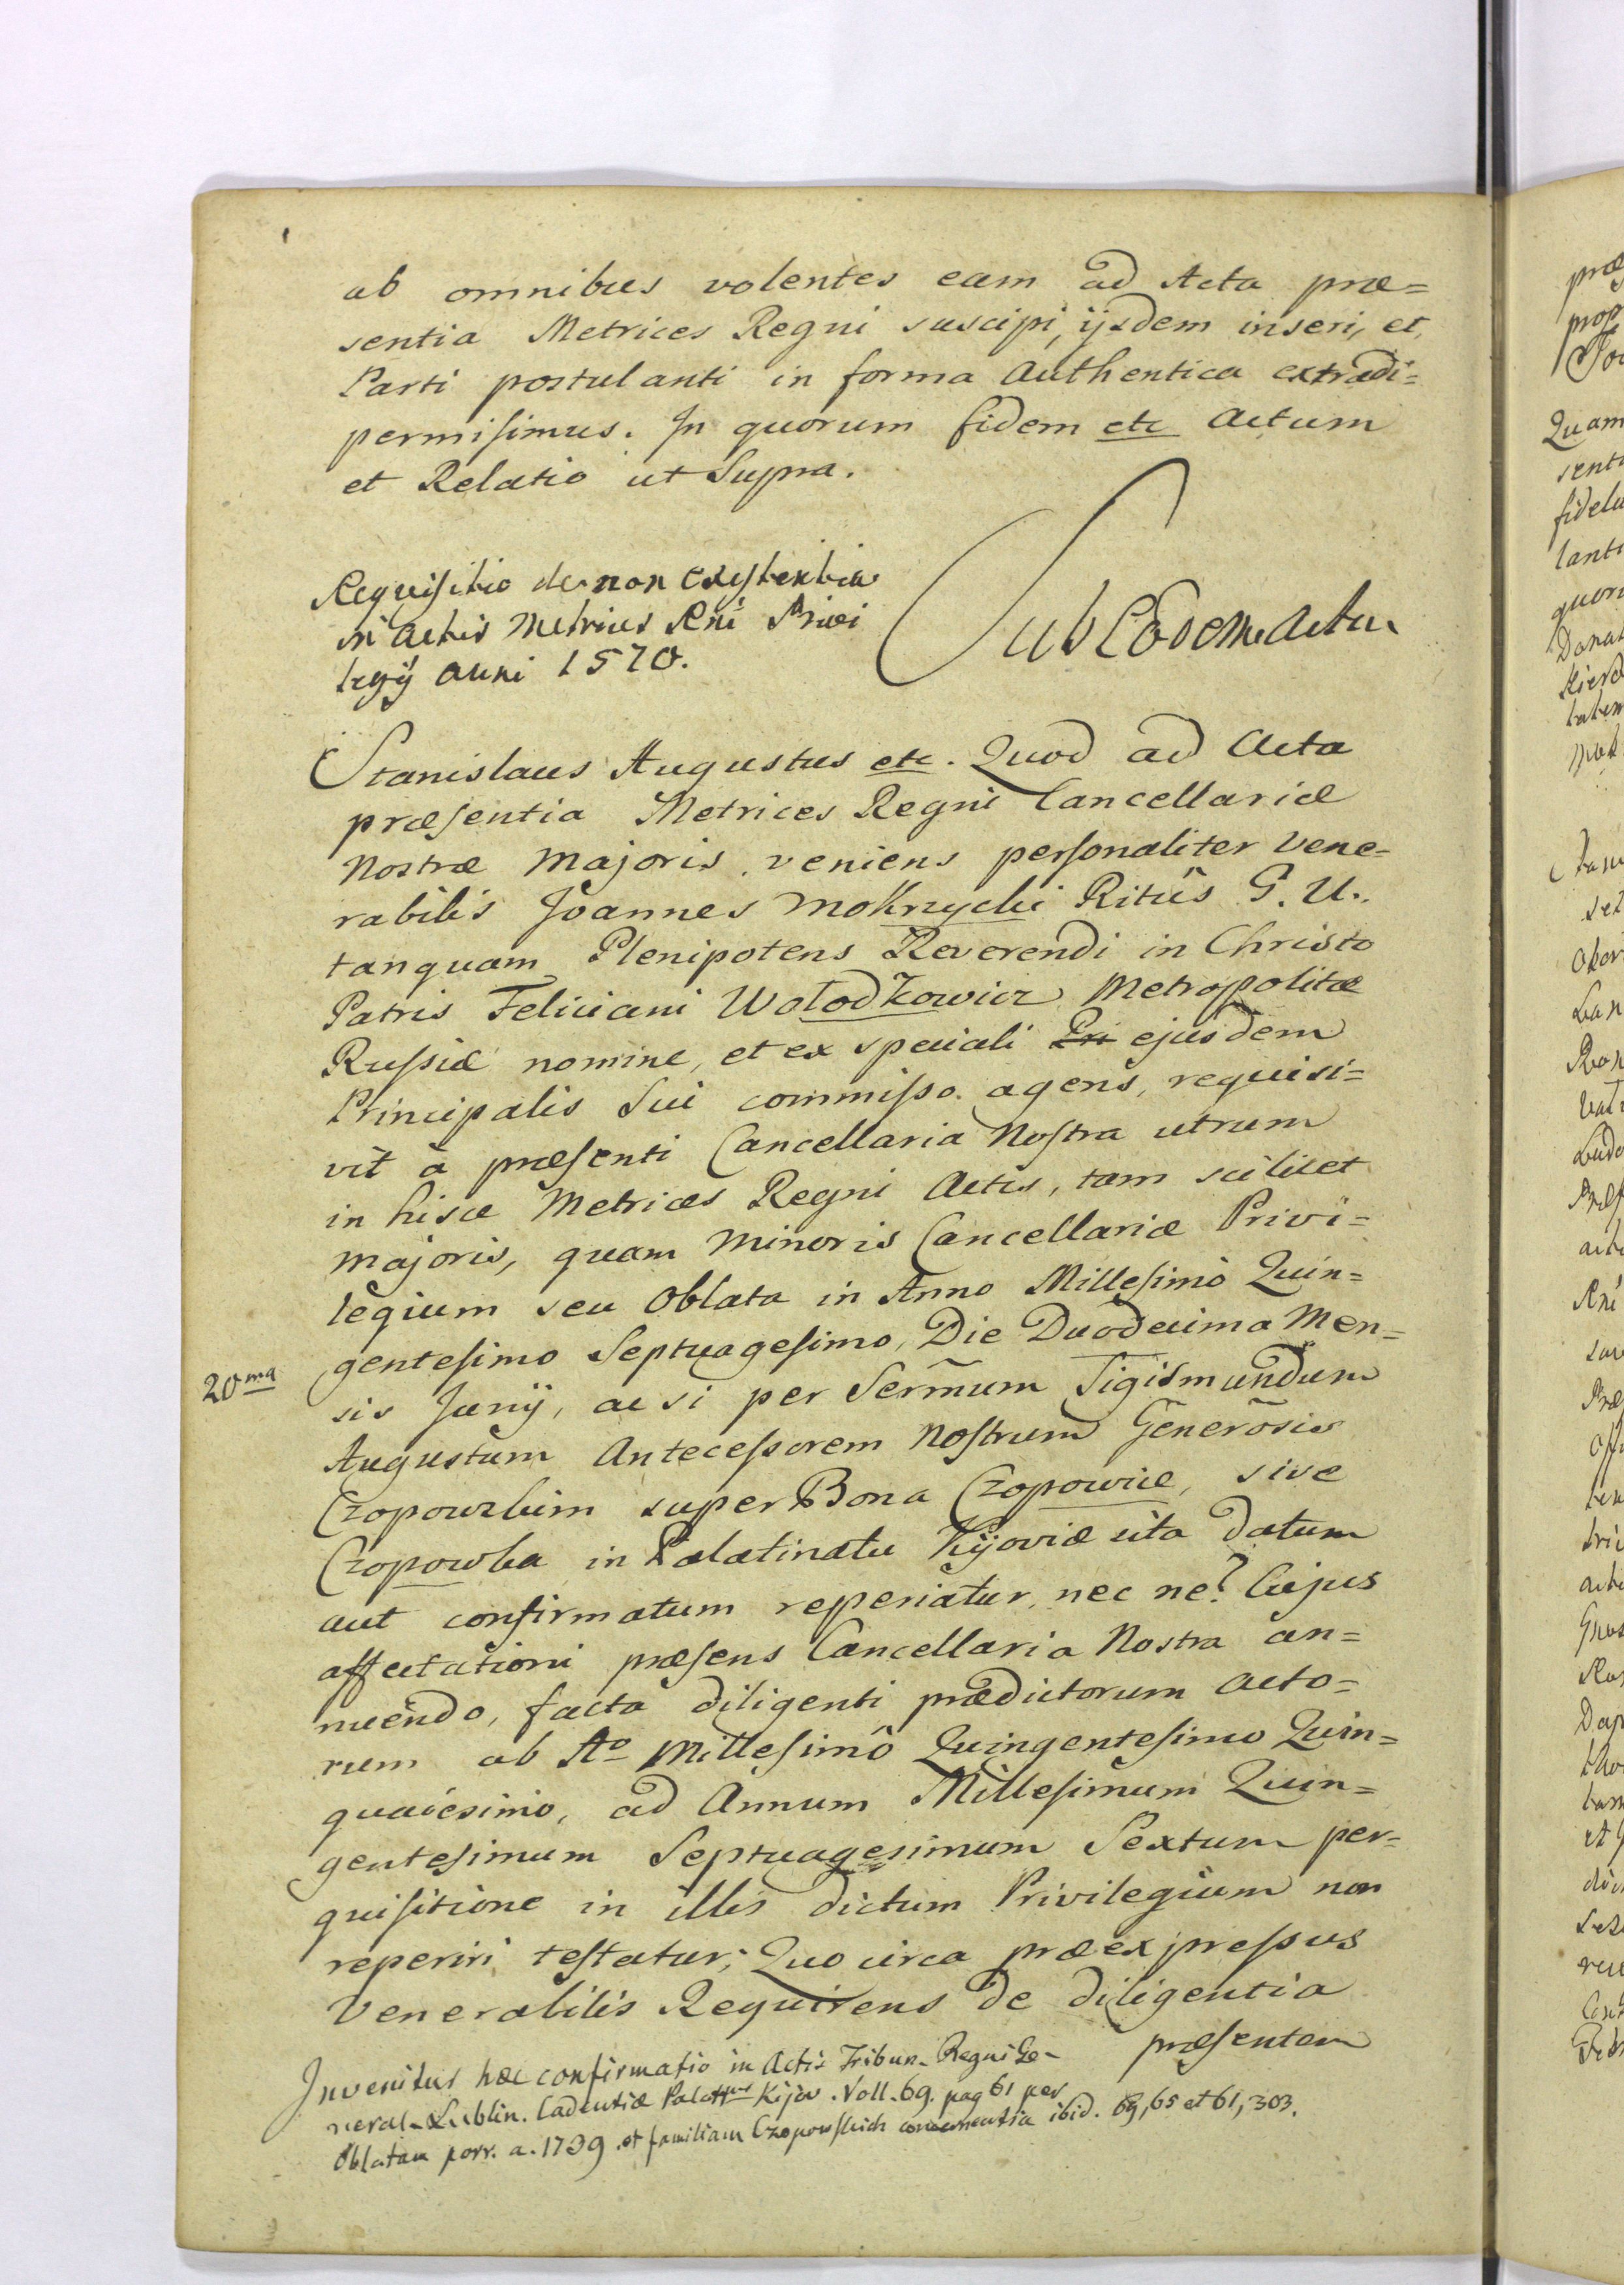 ab omnibus volentes eam ad Acta præ=
sentia Metrices Regni suscipi, ijsdem inseri, et
Parti postulanti in forma Authentica extradi=
permisimus. In quorum fidem etc Actum
et Relatio ut Supra.
Requisitio de non existentia
in Actis Metrices Rni Privi
legij anni 1570.
Sub Eodem Actu
Stanislaus Augustus etc. Quod ad Acta
præsentia Metrices Regni Cancellariæ
Nostræ Majoris veniens personaliter Vene=
rabilis Joannes Mokrzycki Ritûs G. U.
tanquam Plenipotens Reverendi in Christo
Patris Feliciani Wołodkowicz Metropolitæ
Russiæ nomine, et ex speciali Pri ejusdem
Principalis Sui commisso agens, requisi=
vit à præsenti Cancellaria Nostra utrum
in hisce Metrices Regni Actis, tam scilicet
Majoris, quam Minoris Cancellariæ Privi=
legium seu Oblata in Anno Millesimo Quin=
gentesimo Septuagesimo, Die Duodecima Men=
20ma
sis Junij, ac si per Sermum Sigismundum
Augustum Antecessorem Nostrum Generosis
Czopowskim super Bona Czopowice, sive
Czopowka in Palatinatu Kijoviæ sita datum
aut confirmatum reperiatur, nec ne? Cujus
affectationi præsens Cancellaria Nostra an=
nuendo, facta diligenti prædictorum Acto=
rum ab Ao Millesimô Quingentesimo Quin=
quaiesimo, ad Annum Millesimum Quin=
gentesimum Septuagesimum Sextum per=
quisitione in illis dictum Privilegium non
reperiri testatur; Quocirca præexpressus
Venerabilis Requirens de diligentia
præsentem
Invenitur hæc confirmatio in Actis Tribun. Regni Ge-
neral. Lublin. Cadentiæ Palattus Kijov. Voll. 69. pag 61 per
Oblatam porr. a. 1739 et familiam Czopowskich concernentia ibid. 69, 65 et 61, 303.